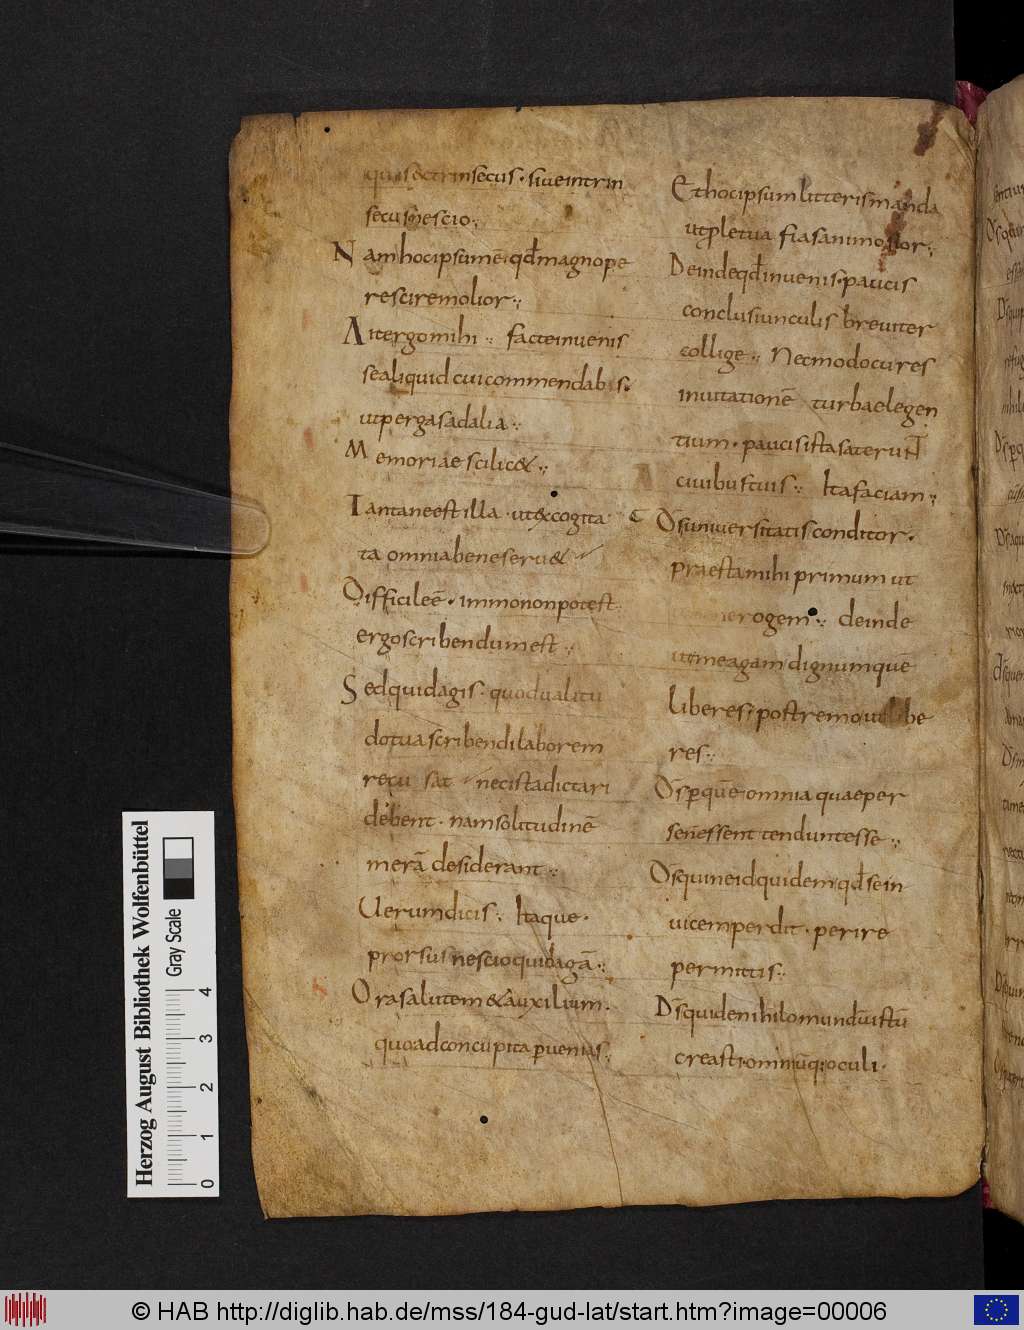 quis extrinsecus · sive intrin
secus nescio ·,
Nam hoc ipsum ē · qđ magnope
re scire molior ·,
Ait ergo mihi ·, fac te invenis
se aliquid cui commendabis ·
ut pergas ad alia ·,
Memoriae scilic& ·,
Tantane est illa · ut excogita
ta omnia bene serv&
Difficile ē · immo non potest
ergo scribendum est ·,
Sed quid agis · quod valitu
do tua scribendi laborem
recusat nec ista dictari
debent · nam solitudinē
merā desiderant ·,
Verum dicis · Itaque ·
prorsus nescio quid agā ·,
Ora salutem & auxilium ·
quo ad concupita pvenias ·,
Et hoc ipsum litteris manda
ut ple tua fias animosior ·,
Deinde qđ invenis · paucis
conclusiunculis breviter
collige ·, Nec modo cures
invitationē turbae legen
tium · paucis ista sat erunt
civibus tuis ·, Ita faciam ·,
Ds universitatis conditor ·
praesta mihi primum ut
rogem ·, deinde
ut me agam dignum quē
liberes · postremo ut libe
res ·,
Ds p quē omnia quae per
se ñ essent tendunt esse ·,
Ds qui ne id quidem qđ se in
vicem perdit · perire
permittis ·,
Ds qui de nihilo mundū istū
creasti · omniū q; oculi ·
Herzog August Bibliothek Wolfenbüttel
Gray Scale
0 1 2 3 4
© HAB http://diglib.hab.de/mss/184-gud-lat/start.htm?image=00006